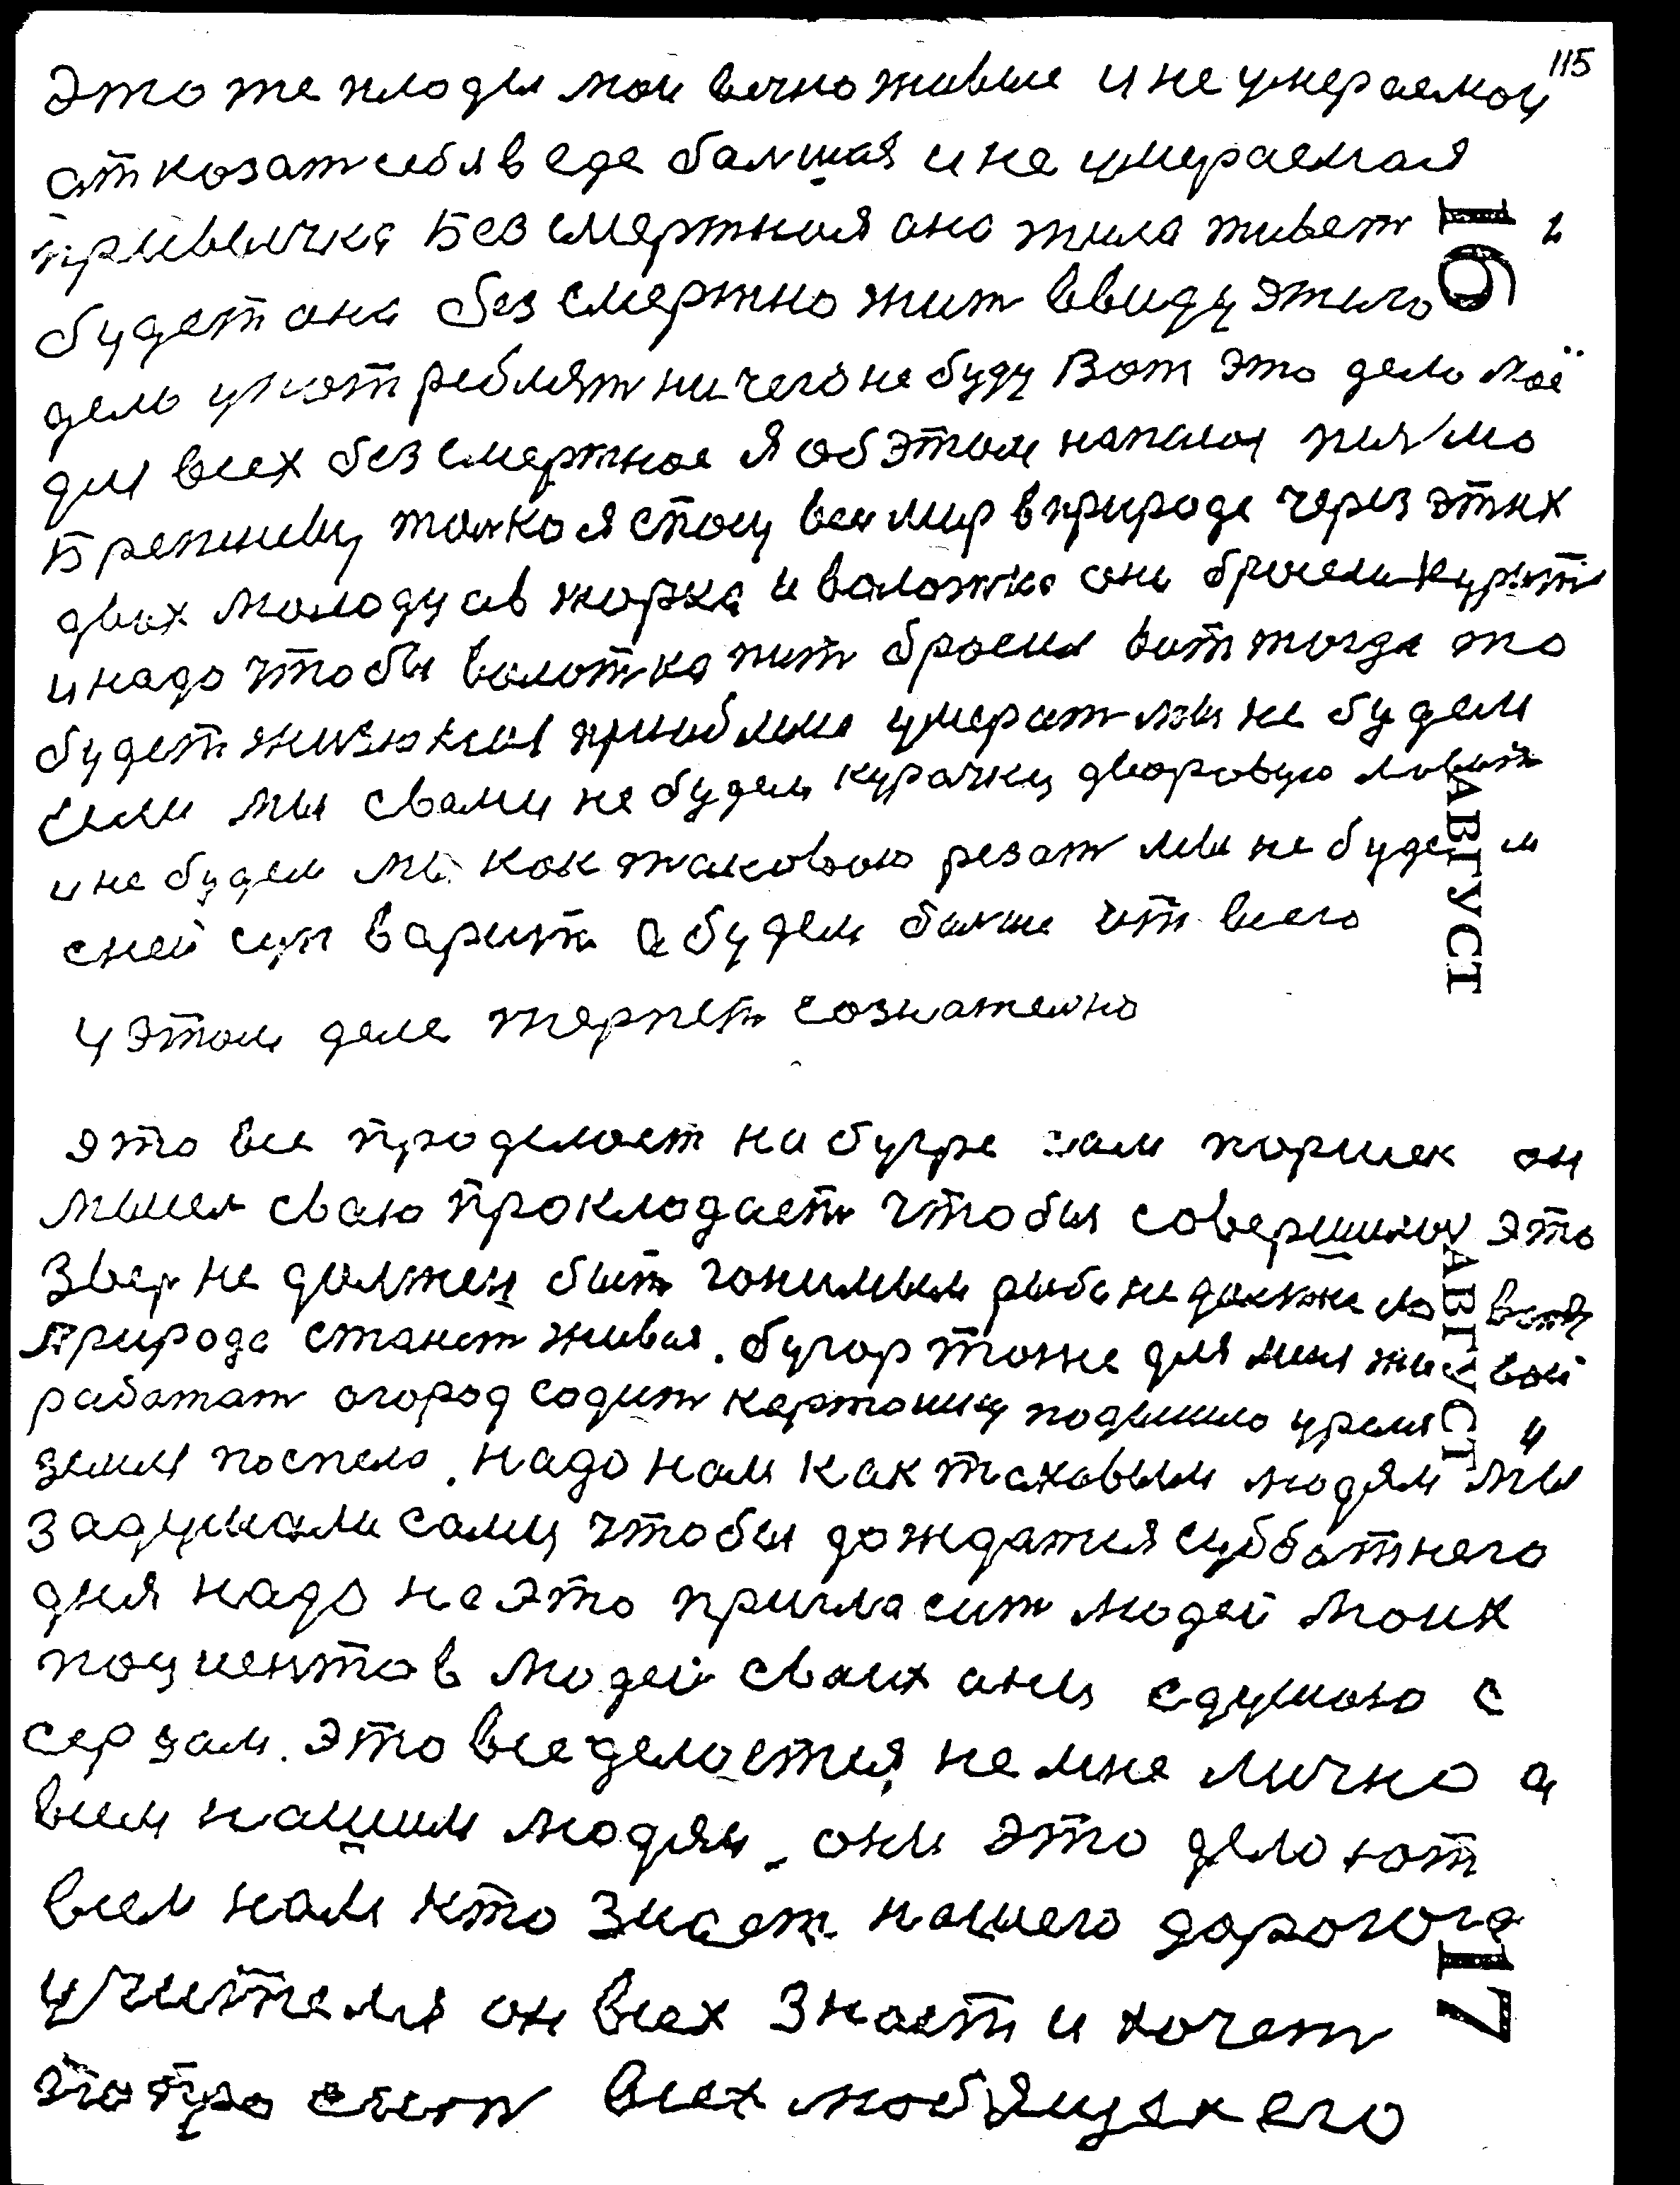 115
Это же плоды мои вечно живые и не умераемои
атказат себя в еде балшая и не умераемая
привычка Безсмертная ана жила живет и
16
будет ана безсмертно жит ввиду этого
дело употреблят ничего не буду Вот это дело моё
для всех безсмертное Я об этом написал писмо
Брежневу толко я стою веи мир в природе через этих
двих молодцов жорка и валотка они бросели курит
и надо чтобы валотка пит бросил вот тогда то
будет жизю мы умерат мы не будем
если мы свами не будем курачку дваровую ловит
АВГУСТ
и не будем мы как таковою резат мы не будем
сней суп варит а будем балше от всего
у этом деле терпет сознателно
это все проделоет на бугре сам поршек он
мысел сваю прокладает чтобы совершилос это
Звер не должен быт гонимым рыба не должна ловитя
АВГУСТ
Природа станет живая. бугор тоже для миня живой
работат огород садит картошку подышло уремя и
земля поспело. надо нам как таковым людям мы
задумали самы чтобы дождатся субботнего
дня надо на это пригласит людей моих
поциентов людей сваих аны сдушою с
серзам. это все делоется не мне лично а
всем нашим людям. они это делоют
всем нам кто знает нашего дорогога
17
учителя он всех знает и хочет
попросит всех любящех его